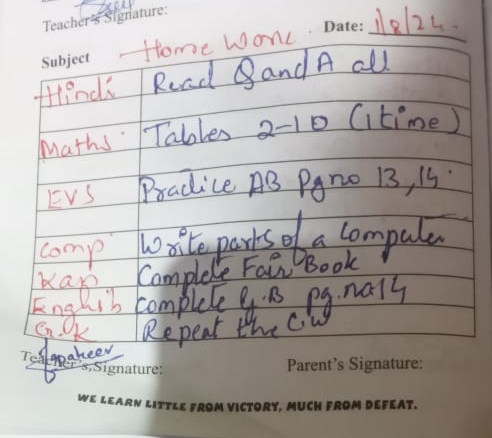 Teacher's Signature:
Date: 1/8/24.
Subject Home Work
Hindi Read Q and A all
Maths Tables 2-10 (1 time)
EVS Practice AB Pg no 13, 14.
Comp Write parts of a Computer
Kan Complete Fair Book
English Complete G.B pg.no 14
G.K Repeat the C.W
Teacher's Signature: Parent's Signature:
WE LEARN LITTLE FROM VICTORY, MUCH FROM DEFEAT.